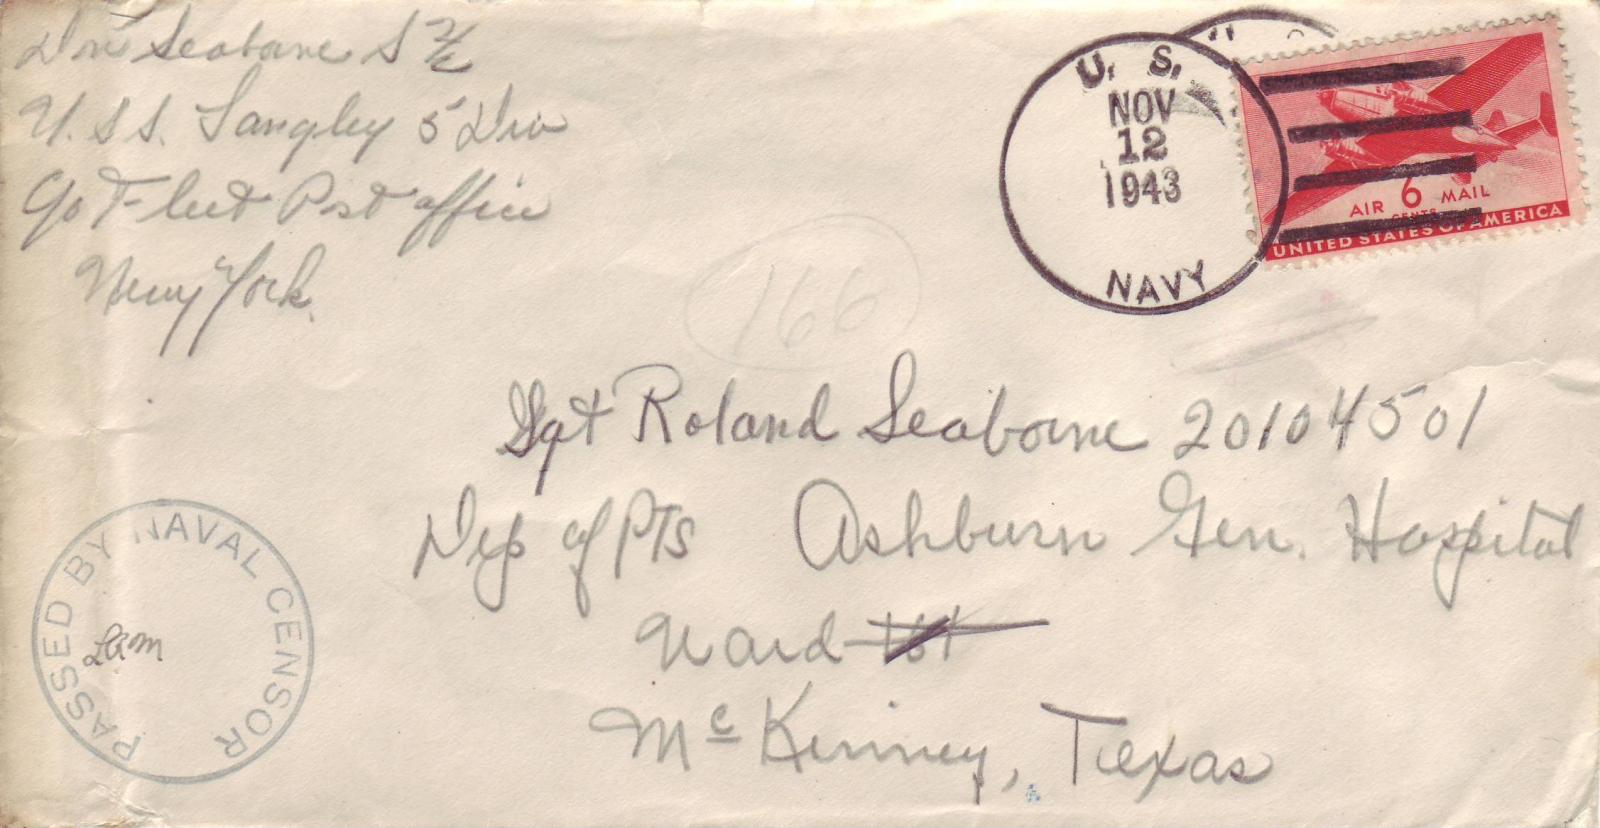 Dn Seaborne S 2/c
U.S.S. Langley 5 Div
c/o Fleet Post office
New York.
U. S.
NOV
12
1943
NAVY
AIR 6 MAIL
CENTS
UNITED STATES OF AMERICA
166
Sgt Roland Seaborne 20104501
Dep of PTS Ashburn Gen. Hospital
Ward
McKinney, Texas
PASSED BY NAVAL CENSOR